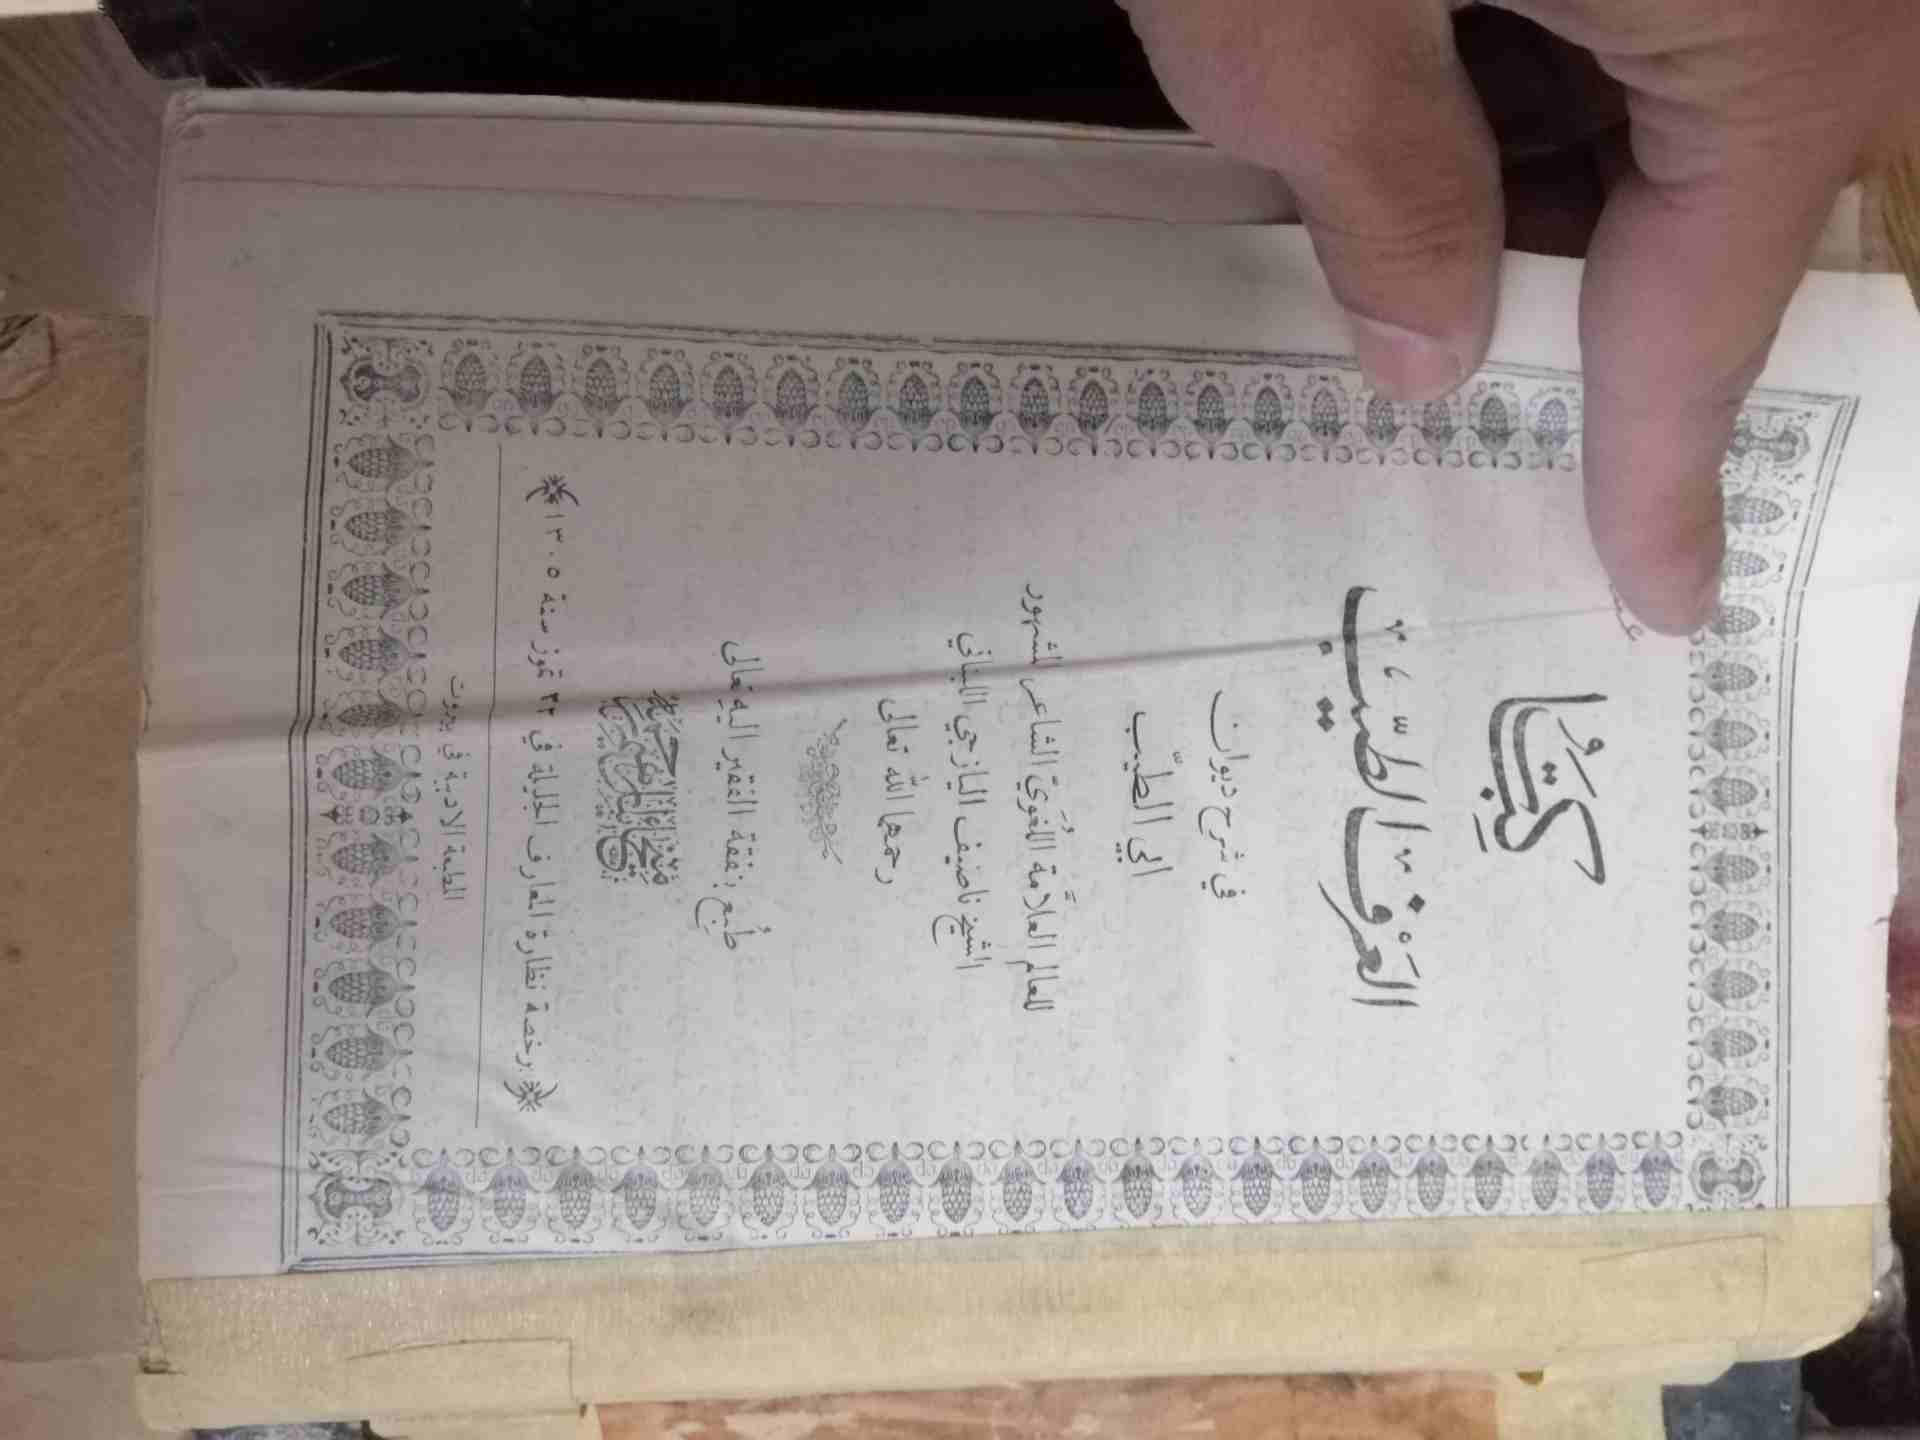 كِتَابُ
العَرْف الطيّب
في شرح ديوان
ابي الطيّب
للعالم العلَّامة اللغَويّ الشاعر المشهور
الشيخ ناصيف اليازجي اللبناني
رحمهما الله تعالى
طُبع بنفقة الفقير اليه تعالى
برخصة نظارة المعارف الجليلة في ٢٣ تموز سنة ١٣٠٥
المطبعة الادبية في بيروت